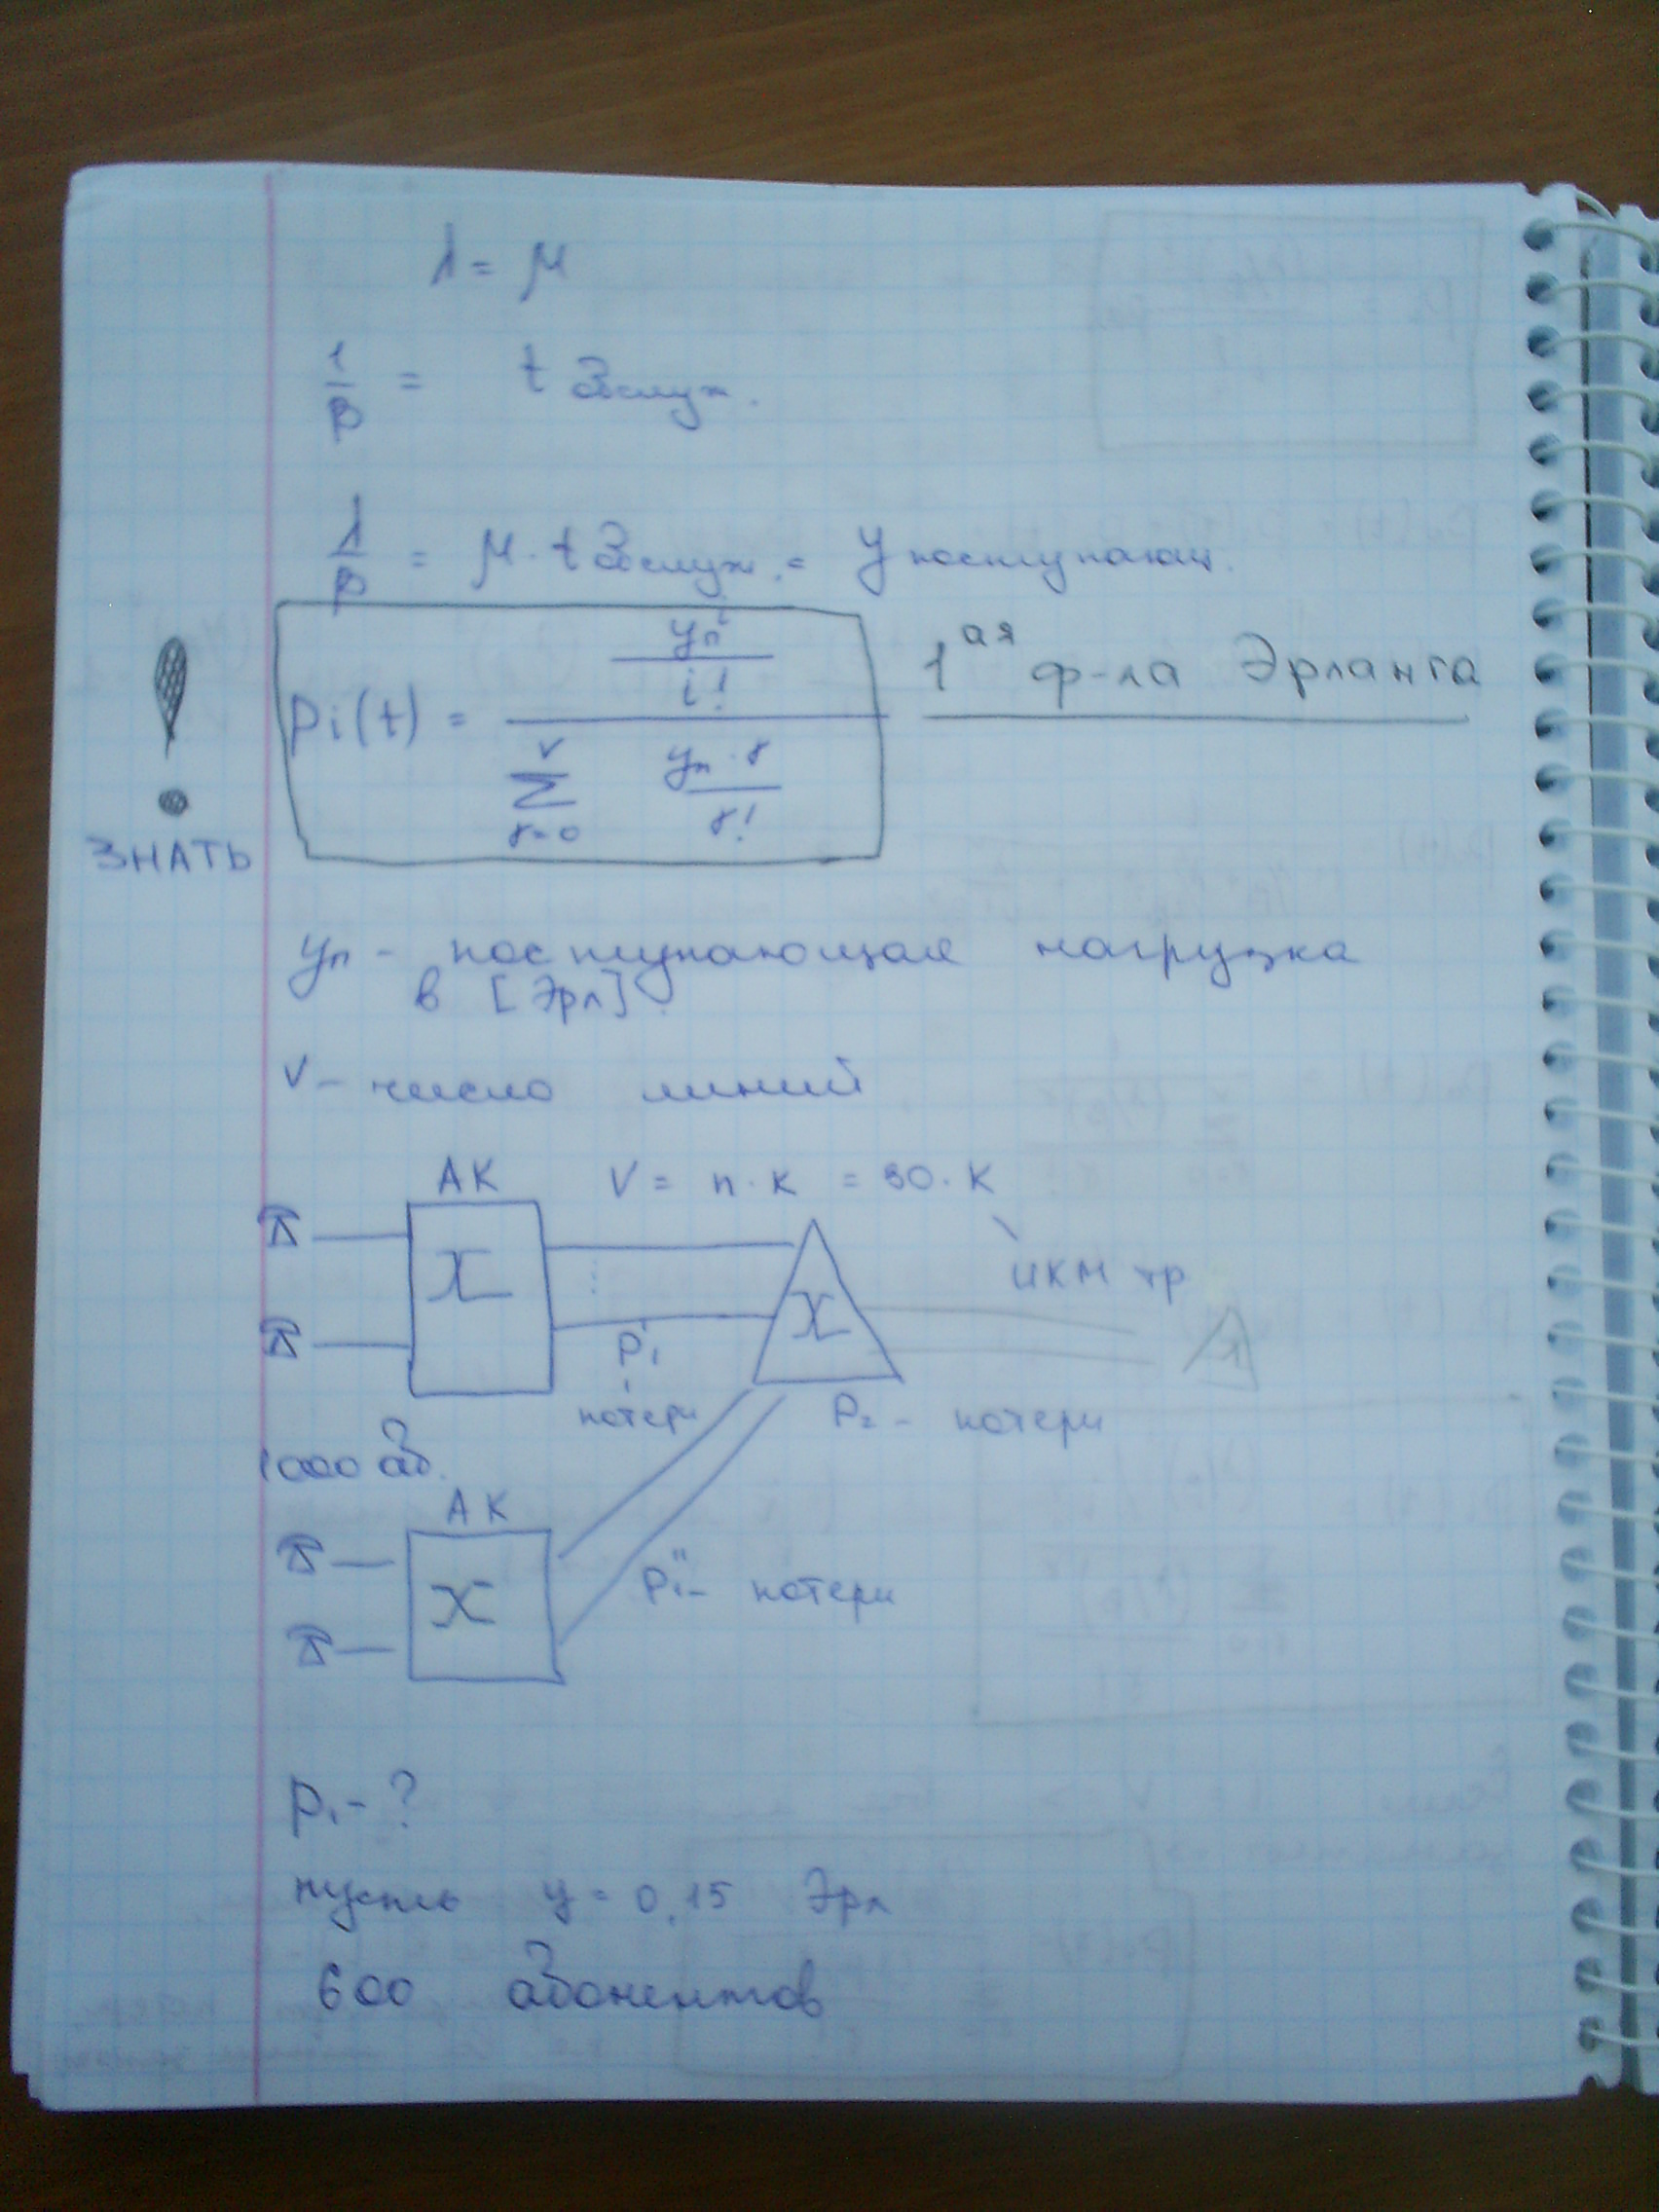 λ = μ
1/β = t обслуж.
λ/β = μ · t обслуж. = y поступающ.
pi(t) = (yп^i / i!) / (Σ r=0 v yп · r / r!)
1ая ф-ла Эрланга
ЗНАТЬ
yп - поступающая нагрузка
в [Эрл].
V - число линий
АК V = n · k = 30 · k
ИКМ тр
P1'
потери P2 - потери
1000 аб.
АК
P1'' - потери
P1 - ?
пусть y = 0,15 Эрл
600 абонентов